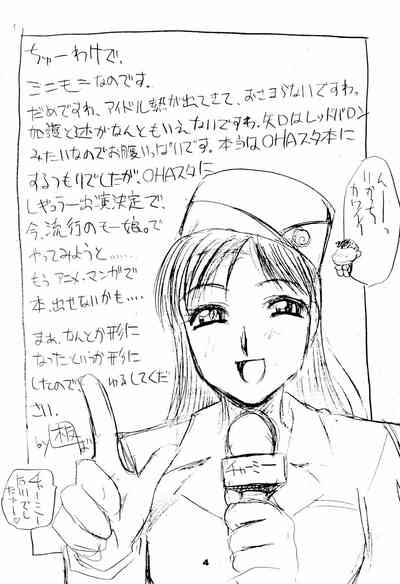 ちゅーわけで、
ミニモニなのです。
だめですわ、アイドル熱が出てきて、おさまらないですわ。
加護と辻がなんともいえないですわ。矢口はレッドバロン
みたいなのでお腹いっぱいです。本当はOHAスタ本に
するつもりでしたが、OHAスタに
レギュラー出演決定で、
今、流行のモー娘。で
やってみようと……
もうアニメ・マンガで
本、出せないかも……
まぁ、なんとか形に
なったというか形に
したので、ゆるしてくだ
さい。
by
ん
かわいい
チャーミー
チャーミー
でした
4